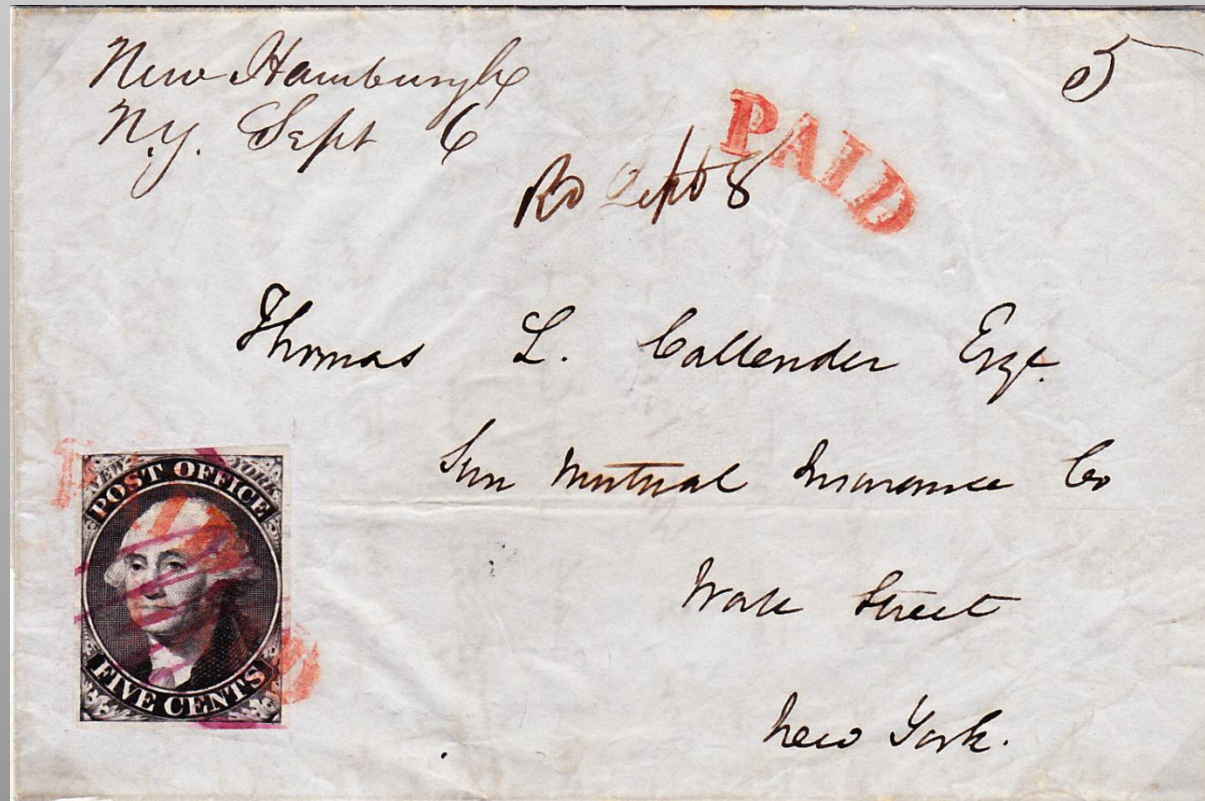 New Hamburgh
N.Y. Sept 6
5
PAID
Rd Sept 8
Thomas L. Callender Esqr.
Sun Mutual Insurance Co
Wall Street
New York.
PAID
NEW YORK
POST OFFICE
FIVE CENTS